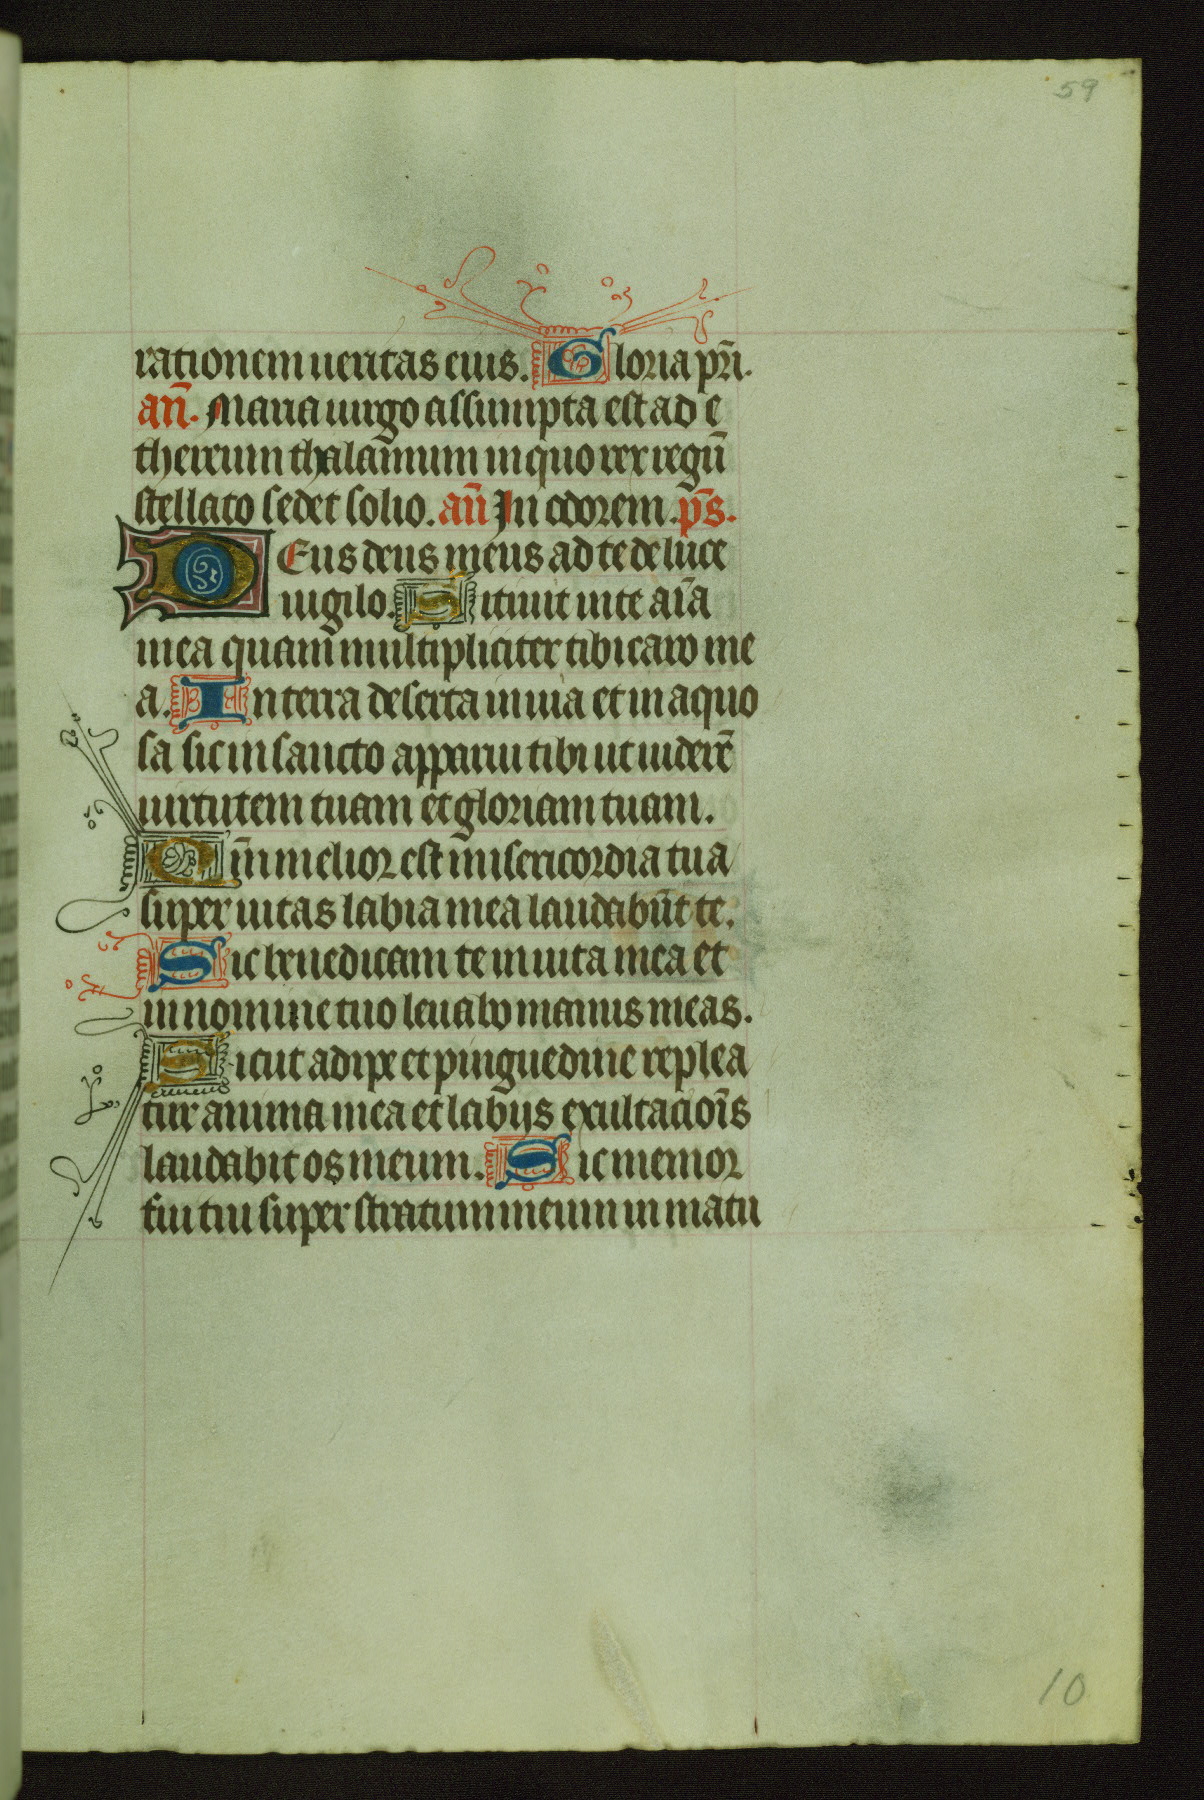 59
rationem ueritas eius. Gloria pr̄i.
an̄. Maria uirgo assumpta est ad e
thereum thalamum in quo rex regū
stellato sedet solio. an̄ In odorem. p̄s.
DEus deus meus ad te de luce
uigilo. Sitiuit in te aīa
mea quam multipliciter tibi caro me
a. In terra deserta inuia et inaquo
sa sic in sancto apparui tibi ut uiderē
uirtutem tuam et gloriam tuam.
Qm̄ melior est misericordia tua
super uitas labia mea laudabūt te.
Sic benedicam te in uita mea et
in nomine tuo leuabo manus meas.
Sicut adipe et pinguedine replea
tur anima mea et labijs exultacioīs
laudabit os meum. Sic memor
fui tui super stratum meum in matu
10